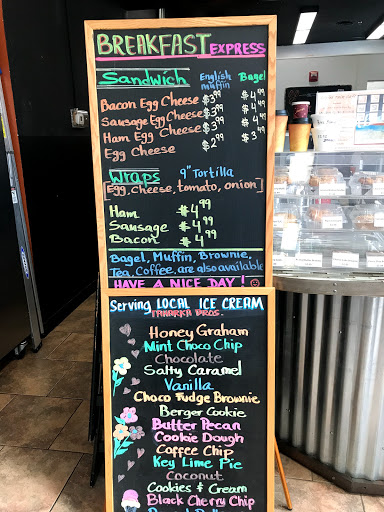 BREAKFAST EXPRESS
Sandwich English muffin Bagel
Bacon Egg Cheese $3.99 $4.49
Sausage Egg Cheese $3.99 $4.49
Ham Egg Cheese $3.99 $4.49
Egg Cheese $2.99 $3.49
Wraps 9" Tortilla
[Egg, cheese, tomato, onion]
Ham $4.99
Sausage $4.99
Bacon $4.99
Bagel, Muffin, Brownie,
Tea, Coffee, are also available
HAVE A NICE DAY!
Serving LOCAL ICE CREAM
TAHARKA BROS.
Honey Graham
Mint Choco Chip
Chocolate
Salty Caramel
Vanilla
Choco Fudge Brownie
Berger Cookie
Butter Pecan
Cookie Dough
Coffee Chip
Key Lime Pie
Coconut
Cookies & Cream
Black Cherry Chip